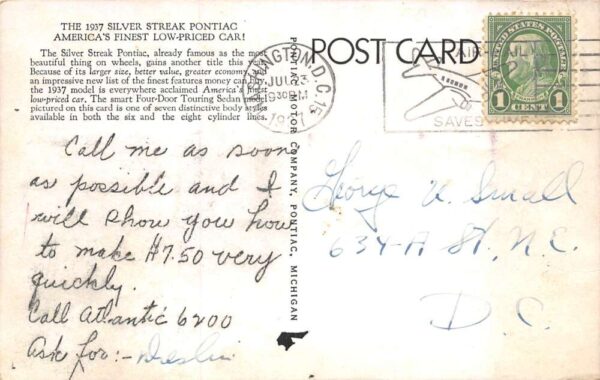 THE 1937 SILVER STREAK PONTIAC
AMERICA'S FINEST LOW-PRICED CAR!
The Silver Streak Pontiac, already famous as the most
beautiful thing on wheels, gains another title this
Because of its larger size, better value, greater economy
an impressive new list of the finest features money can buy,
the 1937 model is everywhere acclaimed America's finest
low-priced car. The smart Four-Door Touring Sedan model
pictured on this card is one of seven distinctive body styles
available in both the six and the eight cylinder lines.
Call me as soon
as possible and I
will show you how
to make $7.50 very
quickly.
Call Atlantic 6200
Ask for:-
PONTIAC MOTOR COMPANY, PONTIAC, MICHIGAN
POST CARD
WASHINGTON, D.C. 15
JUL 23
930PM
AIR MAIL
SAVES
UNITED STATES POSTAGE
1 1
CENT
George W. Small
634-A St, N.E.
D.C.